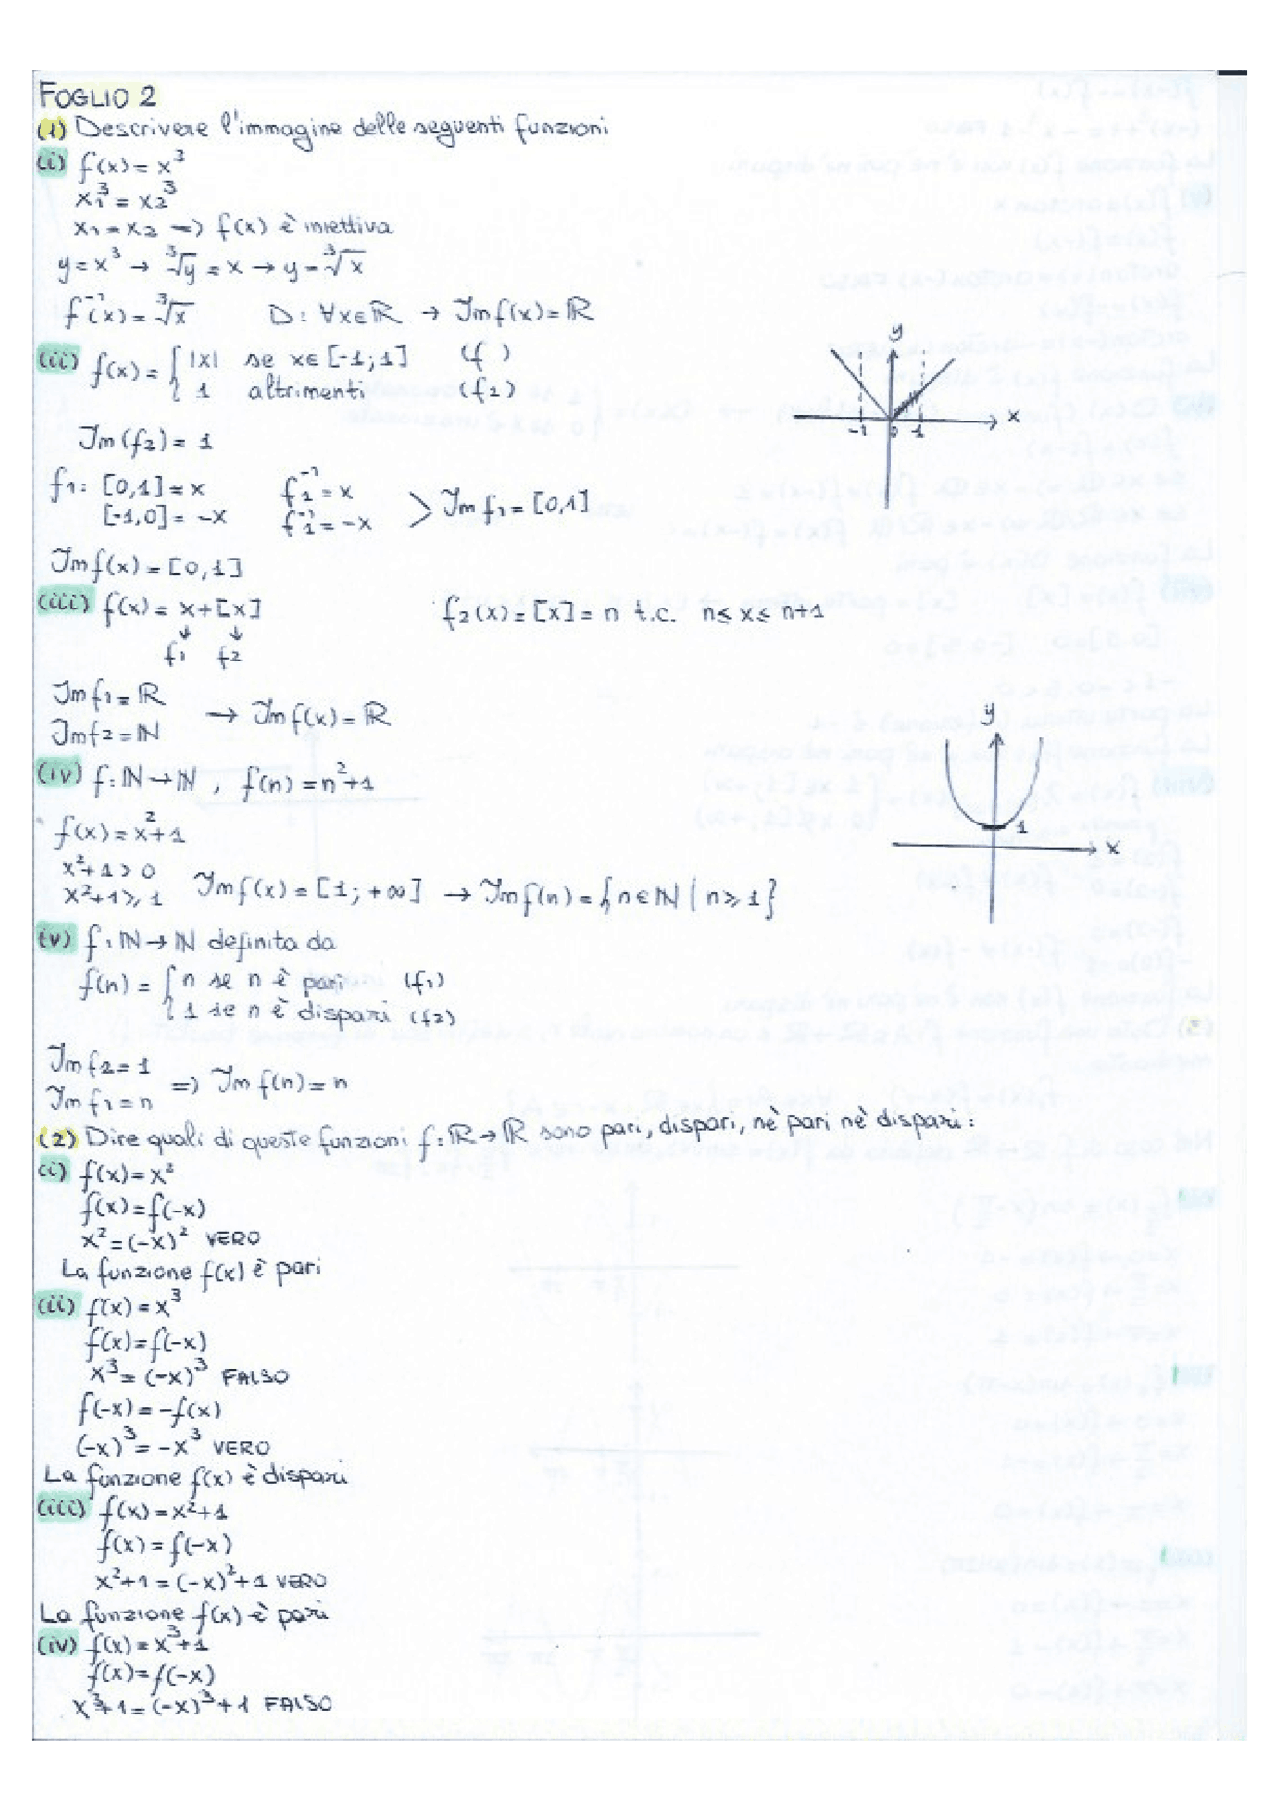 FOGLIO 2
(1) Descrivere l'immagine delle seguenti funzioni
(i) f(x) = x³
x₁³ = x₂³
x₁ = x₂ => f(x) è iniettiva
y = x³ → ∛y = x → y = ∛x
f⁻¹(x) = ∛x D: ∀x∈ℝ → Im f(x) = ℝ
(ii) f(x) = { |x| se x∈[-1;1] (f )
1 altrimenti (f₂)
y
x
-1 0 1
Im(f₂) = 1
f₁: [0,1] = x f₁⁻¹ = x
[-1,0] = -x f₂⁻¹ = -x > Im f₁ = [0,1]
Im f(x) = [0,1]
(iii) f(x) = x + [x] f₂(x) = [x] = n t.c. n ≤ x ≤ n+1
↓ ↓
f₁ f₂
Im f₁ = ℝ
Im f₂ = ℕ → Im f(x) = ℝ
(iv) f: ℕ → ℕ , f(n) = n²+1
y
1
x
f(x) = x²+1
x²+1 > 0
x²+1 ≥ 1 Im f(x) = [1; +∞] → Im f(n) = {n∈ℕ | n ≥ 1}
(v) f: ℕ → ℕ definita da
f(n) = { n se n è pari (f₁)
1 se n è dispari (f₂)
Im f₂ = 1
Im f₁ = n => Im f(n) = n
(2) Dire quali di queste funzioni f: ℝ → ℝ sono pari, dispari, nè pari nè dispari:
(i) f(x) = x²
f(x) = f(-x)
x² = (-x)² VERO
La funzione f(x) è pari
(ii) f(x) = x³
f(x) = f(-x)
x³ = (-x)³ FALSO
f(-x) = -f(x)
(-x)³ = -x³ VERO
La funzione f(x) è dispari
(iii) f(x) = x²+1
f(x) = f(-x)
x²+1 = (-x)²+1 VERO
La funzione f(x) è pari
(iv) f(x) = x³+1
f(x) = f(-x)
x³+1 = (-x)³+1 FALSO